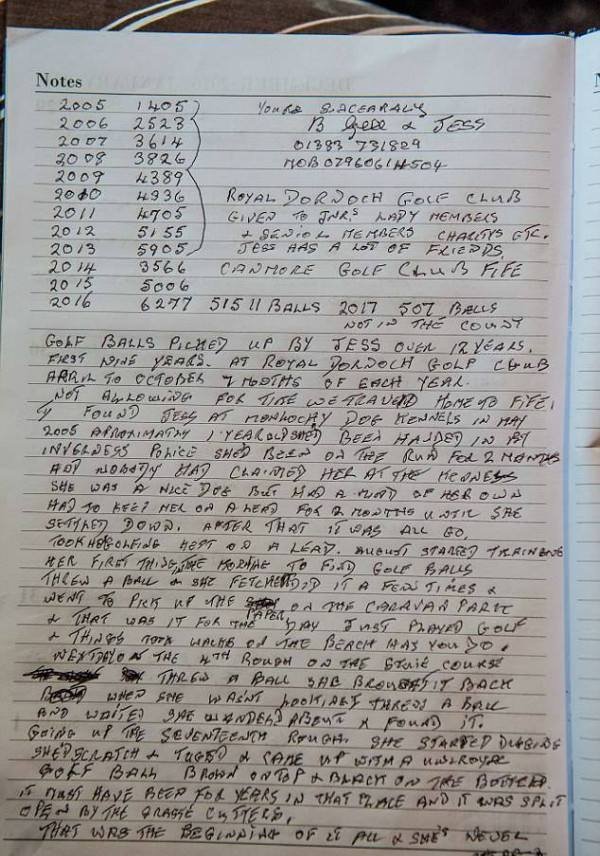 Notes
2005 1405 YOURS SINCEARALY
2006 2523 B & JESS
2007 3614 01383 731829
2008 3826 MOB 07960614504
2009 4389
2010 4936 ROYAL DORNOCH GOLF CLUB
2011 4705 GIVEN TO JNR'S LADY MEMBERS
2012 5155 & SENIOR MEMBERS CHARITYS ETC.
2013 5905 JESS HAS A LOT OF FRIENDS.
2014 3566 CANMORE GOLF CLUB FIFE
2015 5006
2016 6277 51511 BALLS 2017 507 BALLS
NOT IN THE COUNT
GOLF BALLS PICKED UP BY JESS OVER 12 YEARS.
FIRST NINE YEARS. AT ROYAL DORNOCH GOLF CLUB
APRIL TO OCTOBER 7 MONTHS OF EACH YEAR.
NOT ALLOWING FOR TIME WE TRAVED HOME TO FIFE.
I FOUND JESS AT MONLOCHY DOG KENNELS IN MAY
2005 APROXIMATLY 1 YEAR OLD SHED BEEN HANDED IN BY
INVERNESS POLICE SHED BEEN ON THE RUN FOR 2 MONTHS
AND NOBODY HAD CLAIMED HER AT THE KENNELS
SHE WAS A NICE DOG BUT HAD A MIND OF HER OWN
HAD TO KEEP HER ON A LEAD FOR 2 MONTHS UNTIL SHE
SETTLED DOWN. AFTER THAT IT WAS ALL GO.
TOOK HER GOLFING KEPT ON A LEAD. AUGUST STARTED TRAINING
HER FIRST THING IN THE MORNING TO FIND GOLF BALLS
THREW A BALL & SHE FETCHED DID IT A FEW TIMES &
WENT TO PICK UP THE PAPER ON THE CARAVAN PARK
& THAT WAS IT FOR THE DAY JUST PLAYED GOLF
& THINGS TOOK WALKS ON THE BEACH HAS YOU DO.
NEXT DAY ON THE 4TH ROUGH ON THE STRUIE COURSE
THREW A BALL SHE BROUGHT IT BACK
WHEN SHE WASNT LOOKING I THREW A BALL
AND WAITED SHE WANDERD ABOUT & FOUND IT.
GOING UP THE SEVENTEENTH ROUGH. SHE STARTED DIGGING
SHED SCRATCH & TUGED & CAME UP WITH A UNIROYAL
GOLF BALL BROWN ON TOP & BLACK ON THE BOTTOM.
IT MUST HAVE BEEN FOR YEARS IN THAT PLACE AND IT WAS SPLIT
OPEN BY THE GRASSE CUTTERS,
THAT WAS THE BEGINNING OF IT ALL & SHE'S NEVER